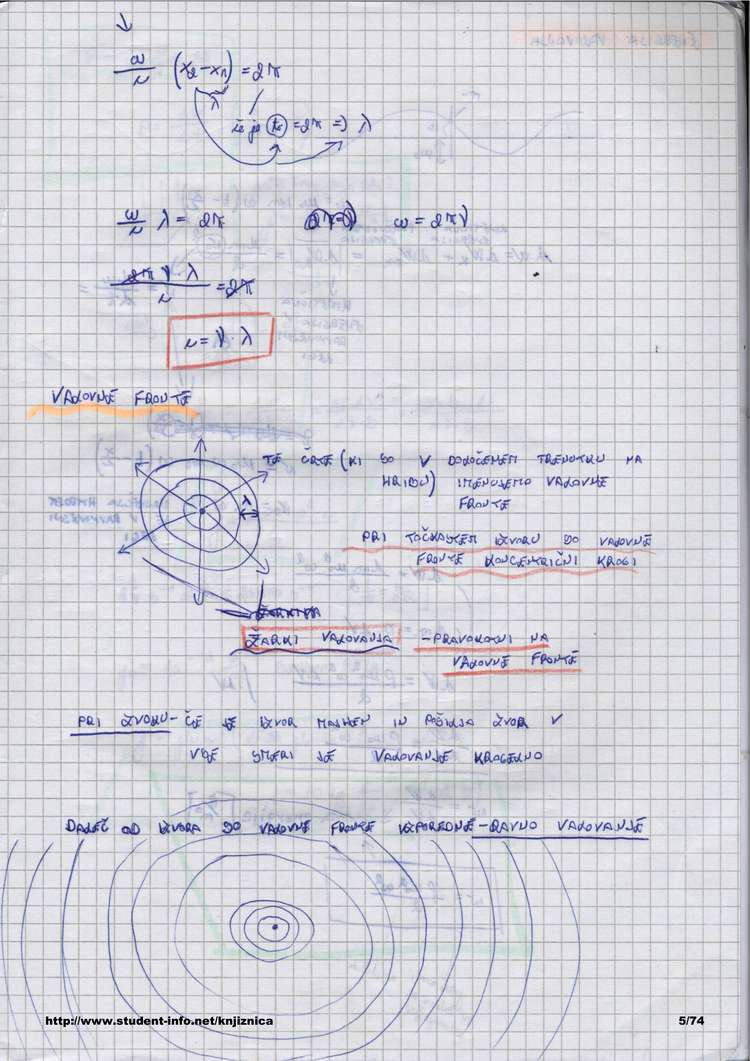 ω/v (x₂-x₁) = 2π
λ
če je = 2π => λ
ω/v λ = 2π ω = 2πν
2πν·λ/v = 2π
v = ν·λ
VALOVNE FRONTE
TE ČRTE (KI SO V DOLOČENEM TRENUTKU NA
HRIBU) IMENUJEMO VALOVNE
FRONTE
λ
PRI TOČKASTEM IZVORU SO VALOVNE
FRONTE KONCENTRIČNI KROGI
ŽARKI VALOVANJA - PRAVOKOTNI NA
VALOVNE FRONTE
PRI IZVORU - ČE JE IZVOR MAJHEN IN POŠILJA IZVOR V
VSE SMERI JE VALOVANJE KROGELNO
DALEČ OD IZVORA SO VALOVNE FRONTE VZPOREDNE - RAVNO VALOVANJE
http://www.student-info.net/knjiznica 5/74